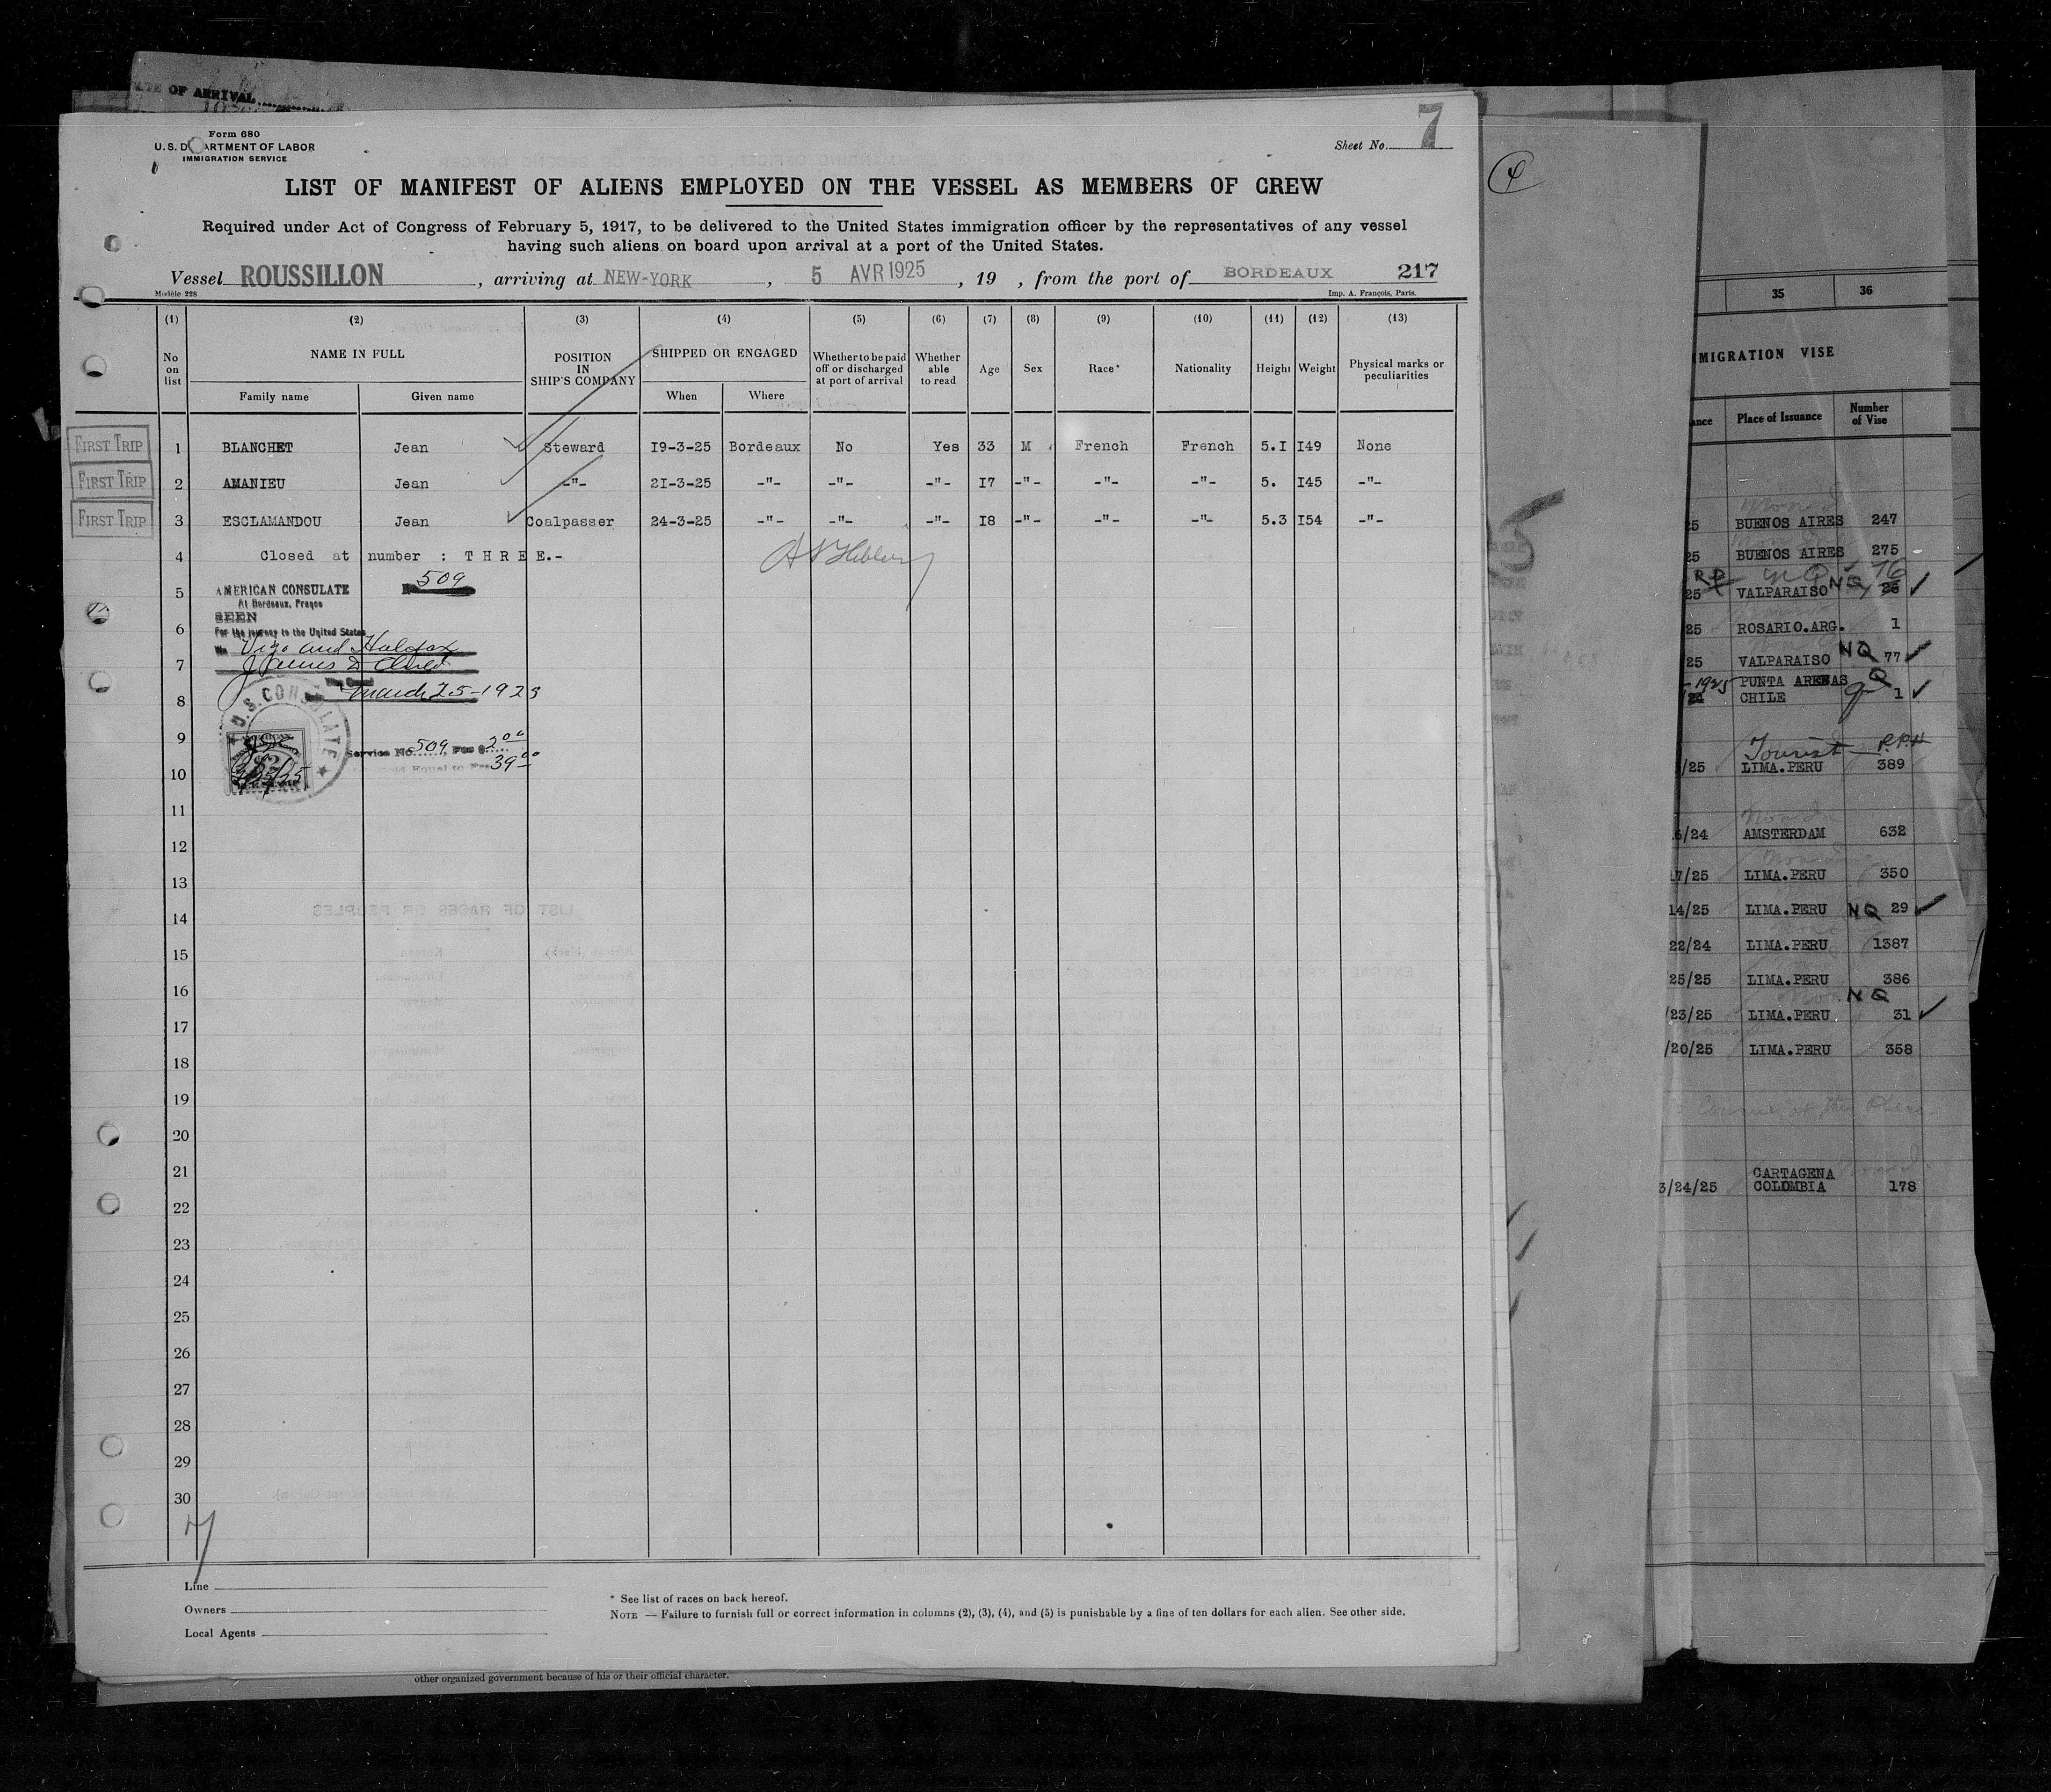 DATE OF ARRIVAL
Form 680
U. S. D ARTMENT OF LABOR
IMMIGRATION SERVICE
Sheet No. 7
LIST OF MANIFEST OF ALIENS EMPLOYED ON THE VESSEL AS MEMBERS OF CREW
Required under Act of Congress of February 5, 1917, to be delivered to the United States immigration officer by the representatives of any vessel
having such aliens on board upon arrival at a port of the United States.
Vessel ROUSSILLON, arriving at NEW-YORK, 5 AVR 1925, 19 , from the port of BORDEAUX 217
Modèle 228
Imp. A. François, Paris.
(1) (2) (3) (4) (5) (6) (7) (8) (9) (10) (11) (12) (13)
No on list
NAME IN FULL
Family name
Given name
POSITION IN SHIP'S COMPANY
SHIPPED OR ENGAGED
When
Where
Whether to be paid off or discharged at port of arrival
Whether able to read
Age
Sex
Race*
Nationality
Height
Weight
Physical marks or peculiarities
FIRST TRIP 1 BLANCHET Jean Steward 19-3-25 Bordeaux No Yes 33 M French French 5.I I49 None
FIRST TRIP 2 AMANIEU Jean -"- 2I-3-25 -"- -"- -"- I7 -"- -"- -"- 5. I45 -"-
FIRST TRIP 3 ESCLAMANDOU Jean Coalpasser 24-3-25 -"- -"- -"- I8 -"- -"- -"- 5.3 I54 -"-
4 Closed at number : T H R E E.-
5 AMERICAN CONSULATE 509
At Bordeaux, France
SEEN
6 For the journey to the United States
Vigo and Halifax
7
March 25-1925
8
U.S. CONSULATE
9 Service No. 509 Fee $ 2.00
39.00
3/25/25
10
11
12
13
14
15
16
17
18
19
20
21
22
23
24
25
26
27
28
29
30
7
Line
Owners
Local Agents
* See list of races on back hereof.
NOTE — Failure to furnish full or correct information in columns (2), (3), (4), and (5) is punishable by a fine of ten dollars for each alien. See other side.
other organized government because of his or their official character.
35 36
MIGRATION VISE
ance Place of Issuance Number of Vise
25 BUENOS AIRES 247
25 BUENOS AIRES 275
25 VALPARAISO NQ 26 76
25 ROSARIO.ARG. 1
25 VALPARAISO NQ 77
1925 PUNTA ARENAS Q
24 CHILE 1
Tourist
/25 LIMA.PERU 389
6/24 AMSTERDAM 632
17/25 LIMA.PERU 350
14/25 LIMA.PERU NQ 29
22/24 LIMA.PERU 1387
25/25 LIMA.PERU 386
NQ
/23/25 LIMA.PERU 31
/20/25 LIMA.PERU 358
CARTAGENA
3/24/25 COLOMBIA 178